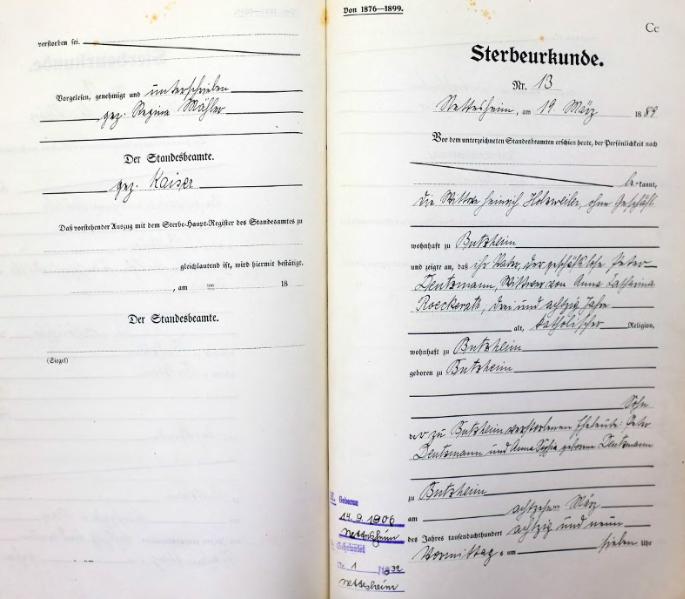 verstorben sei.
Vorgelesen, genehmigt und unterschrieben
gez. Regina Mähler
Der Standesbeamte.
gez. Kaiser
Daß vorstehender Auszug mit dem Sterbe-Haupt-Register des Standesamtes zu
gleichlautend ist, wird hiermit bestätigt.
, am ten 18
Der Standesbeamte.
(Siegel)
Von 1876—1899.
Cc
Sterbeurkunde.
Nr. 13
Nettesheim, am 19 März 1889
Vor dem unterzeichneten Standesbeamten erschien heute, der Persönlichkeit nach
bekannt,
die Wittwe Heinrich Holzweiler, ohne Geschäft
wohnhaft zu Butzheim
und zeigte an, daß ihr Vater, der geschäftslose Peter
Deutzmann, Wittwer von Anna Catharina
Roeckerath, drei und achtzig Jahre
alt, katholischer Religion,
wohnhaft zu Butzheim
geboren zu Butzheim
Sohn
der zu Butzheim verstorbenen Eheleute: Peter
Deutzmann und Anna Sophia geborene Deutzmann
zu Butzheim
am achtzehn März
des Jahres tausendachthundert achtzig und neun
Vormittags um sieben Uhr
Geboren
14.9.1906
Nettesheim
Nr. 1 1932
Nettesheim